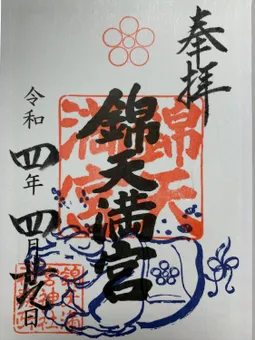 奉拝
錦天満宮
錦天
満宮
令和四年四月廿九日